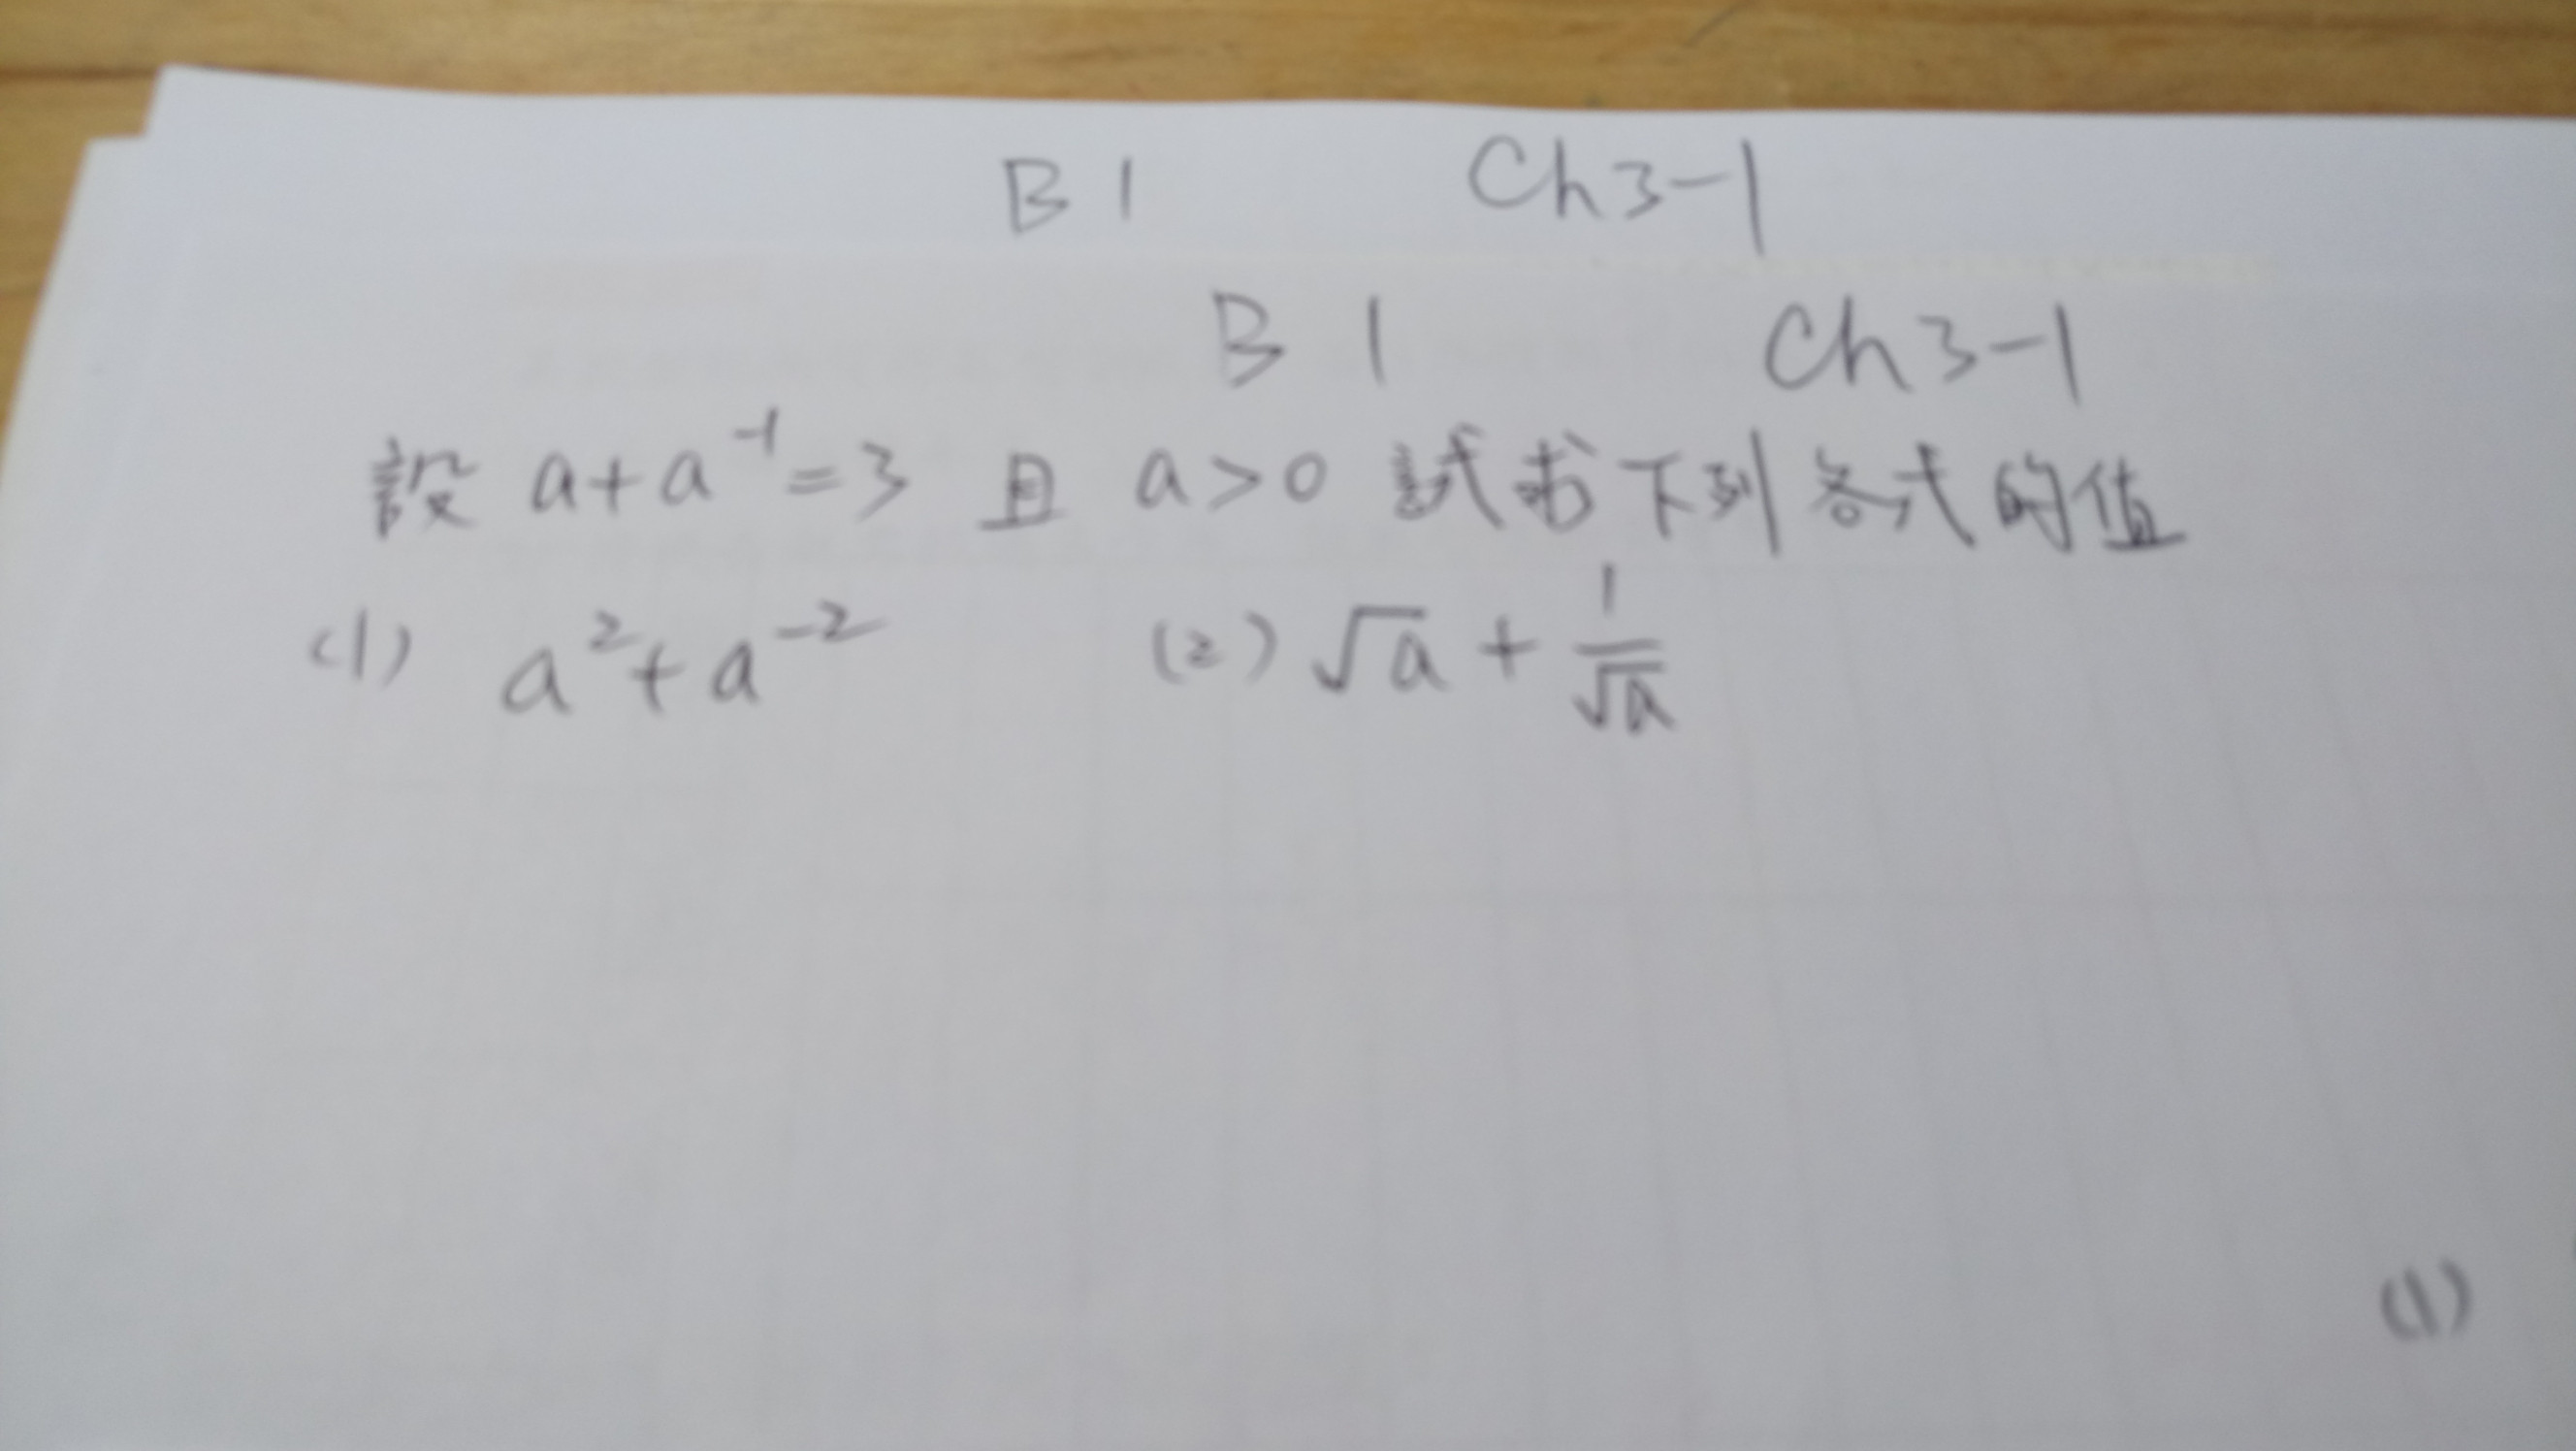 B 1 Ch 3-1
B 1 Ch 3-1
設 a+a⁻¹=3 且 a>0 試求下列各式的值
(1) a²+a⁻² (2) √a + 1/√a
(1)